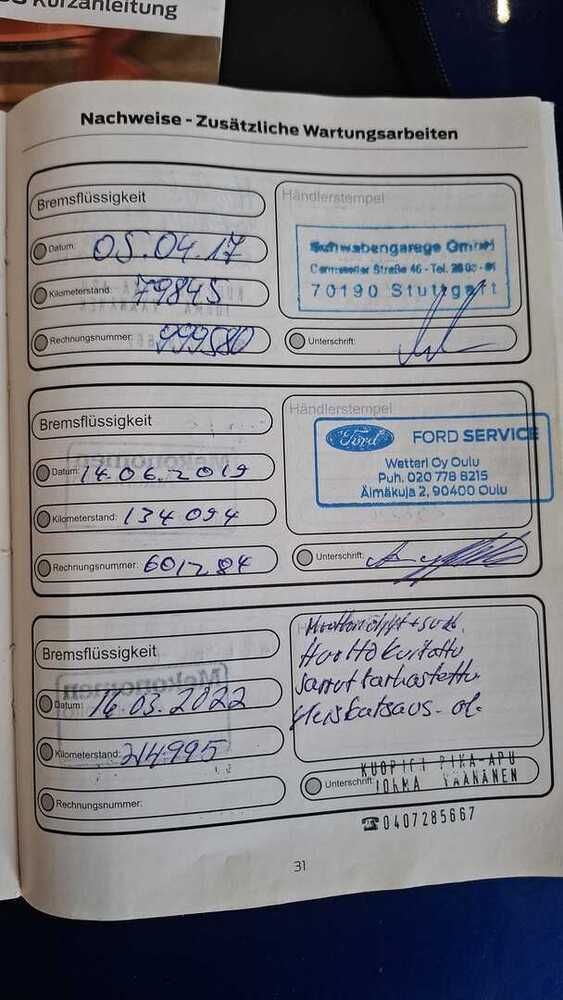 Kurzanleitung
Nachweise - Zusätzliche Wartungsarbeiten
Bremsflüssigkeit
Händlerstempel
Datum: 05.04.17
Schwabengarage GmbH
Straße 46 - Tel.
Kilometerstand: 79845
70190 Stuttgart
Rechnungsnummer: 999580
Unterschrift:
Bremsflüssigkeit
Händlerstempel
Ford FORD SERVICE
Datum: 14.06.2019
Wetteri Oy Oulu
Puh. 020 778 8215
Älmäkuja 2, 90400 Oulu
Kilometerstand: 134 094
Rechnungsnummer: 601284
Unterschrift:
Huolto kuitattu
Bremsflüssigkeit
Jarrut tarkastettu
Mekonomen
Datum: 16.03.2022
Yleiskatsaus - ok.
Kilometerstand: 214995
KUOPION PIKA-APU
Unterschrift:
JORMA VÄÄNÄNEN
Rechnungsnummer:
☎0407285667
31